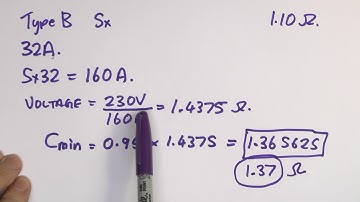 Type B 5x 1.10 Ω.
32A.
5x32 = 160A.
VOLTAGE = 230V = 1.4375 Ω.
160
Cmin = 0.95 x 1.4375 = 1.365625
1.37 Ω